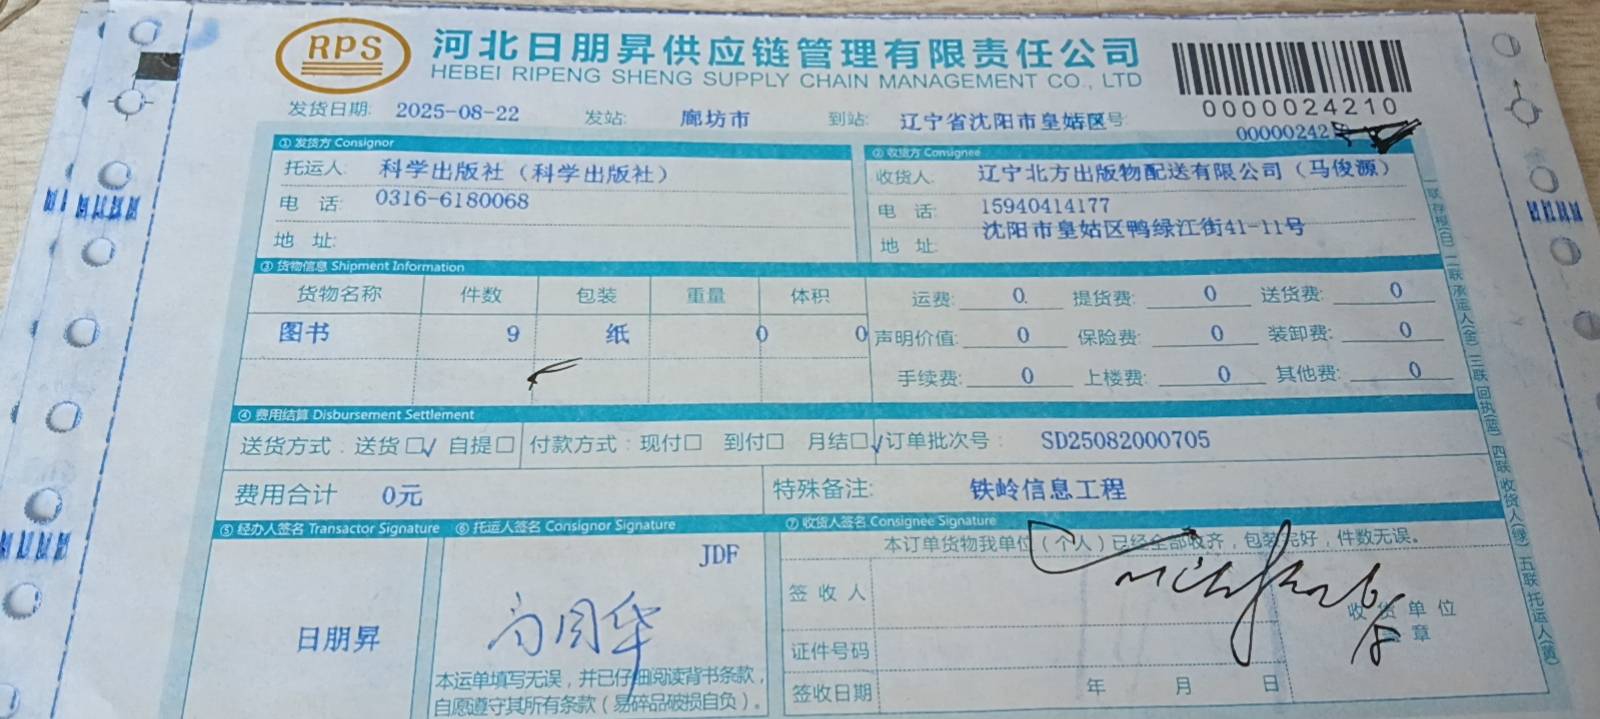 RPS
河北日朋昇供应链管理有限责任公司
HEBEI RIPENG SHENG SUPPLY CHAIN MANAGEMENT CO., LTD
0000024210
发货日期: 2025-08-22 发站: 廊坊市 到站: 辽宁省沈阳市皇姑区
00000242
① 发货方 Consignor
托运人: 科学出版社（科学出版社）
电 话: 0316-6180068
地 址:
② 收货方 Consignee
收货人: 辽宁北方出版物配送有限公司（马俊源）
电 话: 15940414177
地 址: 沈阳市皇姑区鸭绿江街41-11号
③ 货物信息 Shipment Information
货物名称 件数 包装 重量 体积
图书 9 纸 0 0
运费: 0. 提货费: 0 送货费: 0
声明价值: 0 保险费: 0 装卸费: 0
手续费: 0 上楼费: 0 其他费: 0
④ 费用结算 Disbursement Settlement
送货方式: 送货□√ 自提□ 付款方式: 现付□ 到付□ 月结□√ 订单批次号: SD25082000705
费用合计 0元 特殊备注: 铁岭信息工程
⑤ 经办人签名 Transactor Signature
日朋昇
⑥ 托运人签名 Consignor Signature
JDF
本运单填写无误，并已仔细阅读背书条款，
自愿遵守其所有条款（易碎品破损自负）。
⑦ 收货人签名 Consignee Signature
本订单货物我单位（个人）已经全部收齐，包装完好，件数无误。
签 收 人
收 货 单 位
章
证件号码
签收日期 年 月 日
一联存根(白) 二联承运人(金) 三联回执(蓝) 四联收货人(绿) 五联托运人(黄)